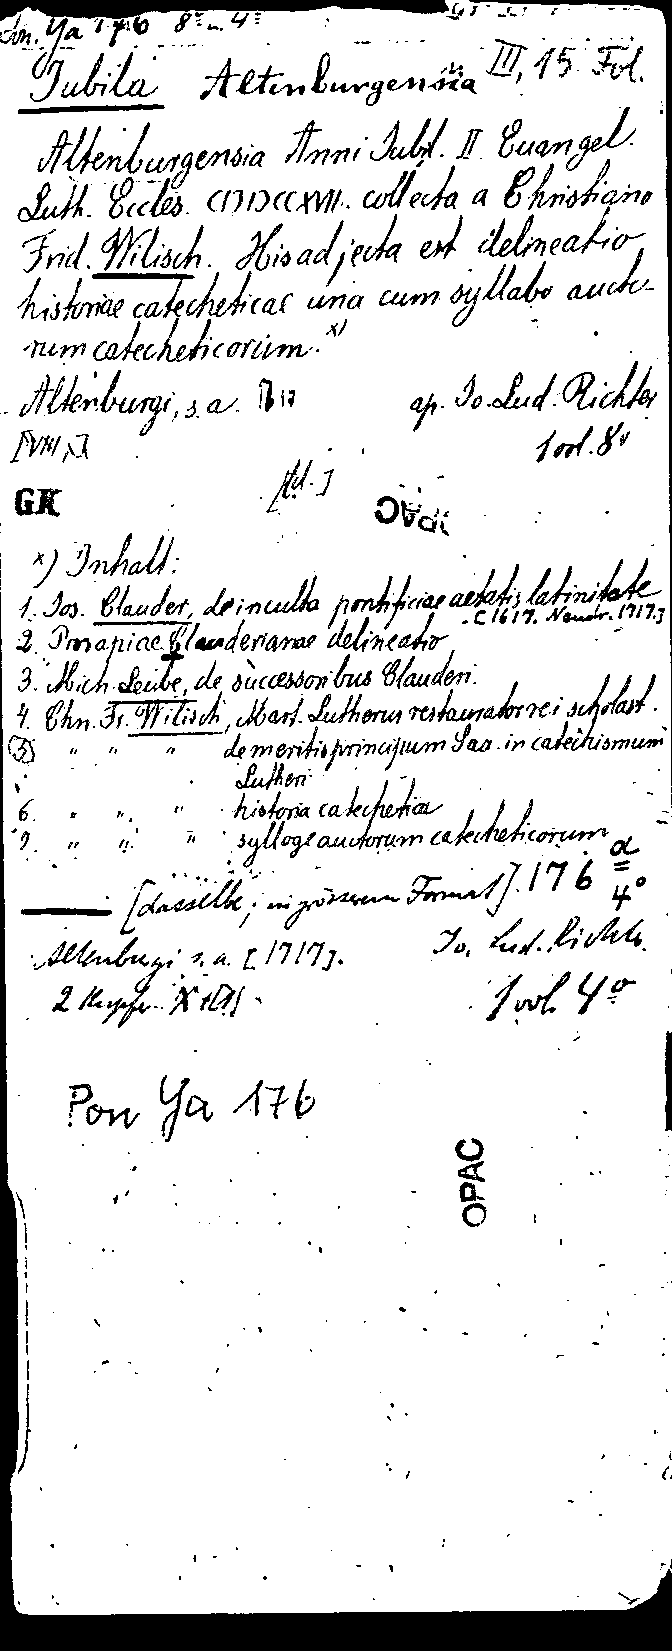 Pon. Ya 176 8° u. 4°
Jubila Altenburgensia III, 15 Fol.
Altenburgensia Anni Jubil. II Euangel.
Luth. Eccles. CIƆIƆCCXVII. collecta a Christiano
Frid. Wilisch. His adjecta est delineatio
historiae catecheticae una cum syllabo aucto-
rum catecheticorum. x)
Altenburgi, s. a. 1717 ap. Jo. Lud. Richter
1 vol. 8°
GK OPAC
x) Inhalt:
1. Jos. Clauder, de inculta pontificiae aetatis latinitate
[1617. Neudr. 1717.]
2. Prosapiae Clauderianae delineatio
3. Mich. Leibe, de successoribus Clauderi.
4. Chn. Fr. Wilisch, Mart. Lutherus restaurator rei scholast.
5 " " " de meritis principum Sax. in catechismum
Lutheri
6. " " " historia catechetica
7. " " " sylloge auctorum catecheticorum
— [dasselbe, in grösserem Format]. 176 α
4°
Altenburgi s. a. [1717]. Jo. Lud. Richter.
2 Kupfer 1 vol. 4°
Pon Ya 176
OPAC